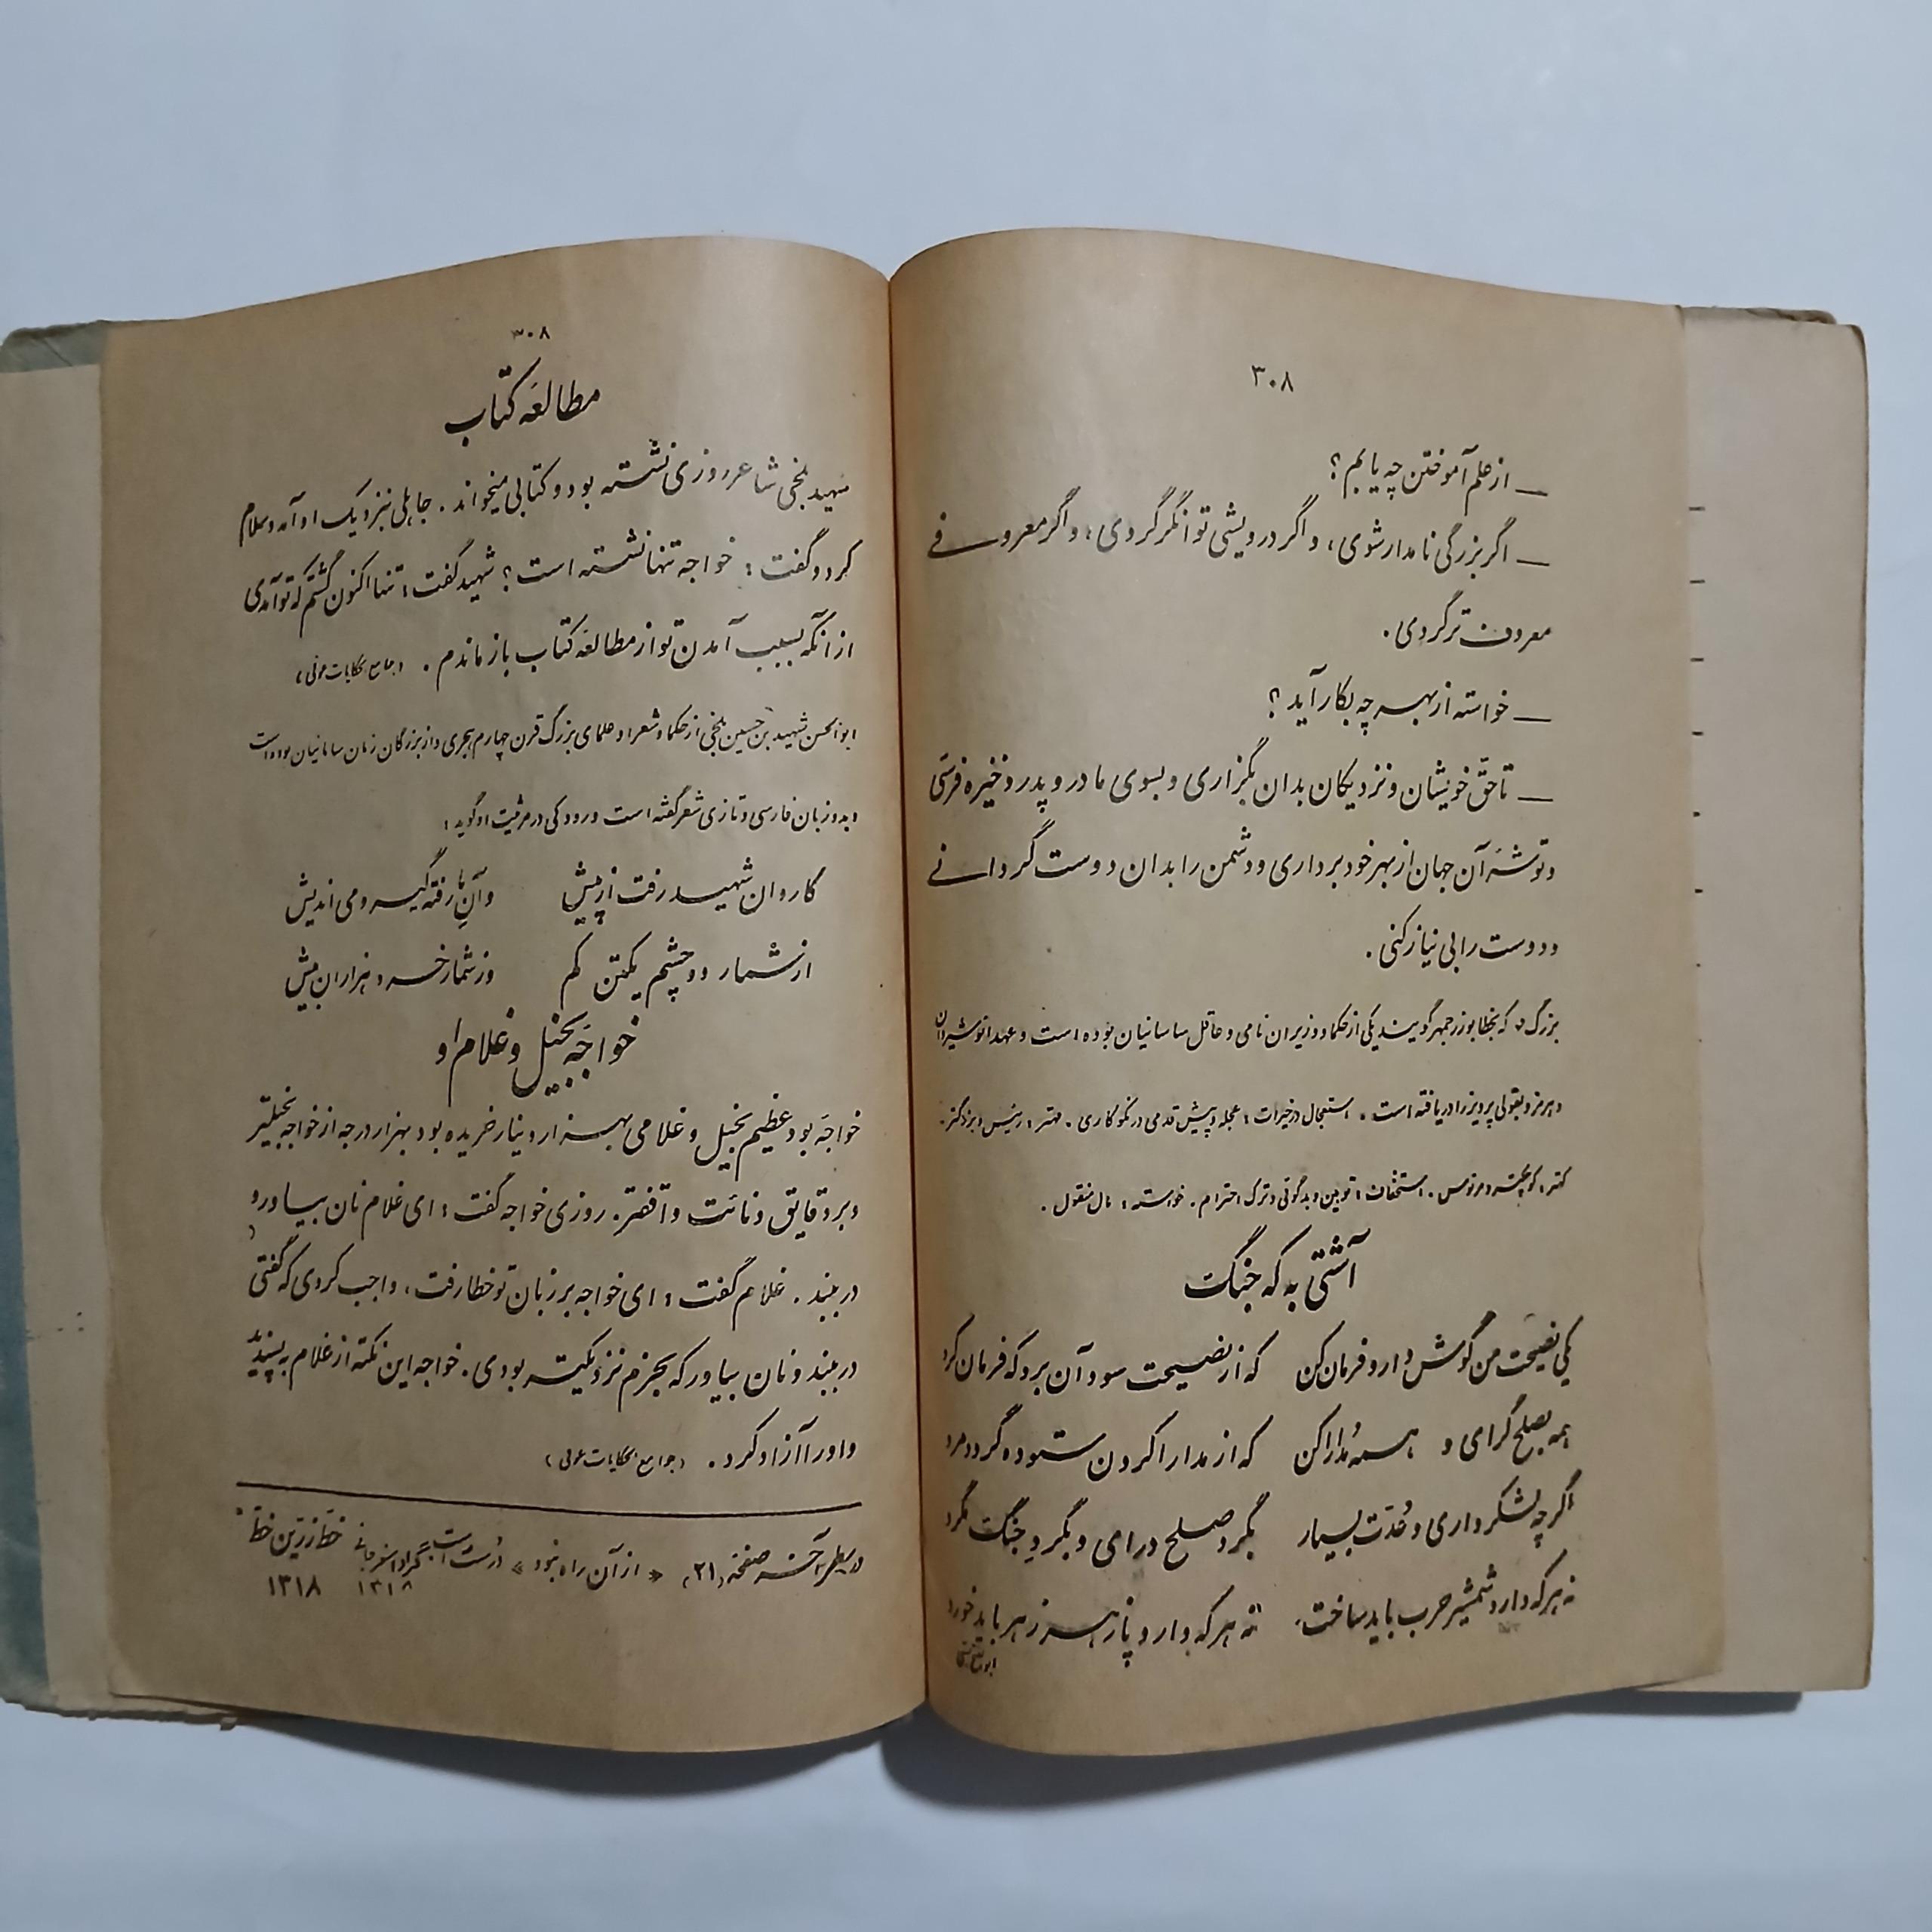 ۳۰۸
ـــ از علم آموختن چه یابم؟
ـــ اگر بزرگی نامدار شوی، و اگر درویشی توانگر گردی، و اگر معروفی
معروف تر گردی.
ـــ خواسته از بهر چه بکار آید؟
ـــ تا حقّ خویشان و نزدیکان بدان بگزاری و بسوی مادر و پدر ذخیره فرستی
و توشهٔ آن جهان از بهر خود برداری و دشمن را بدان دوست گردانی
و دوست را بی نیاز کنی.
بزرگ که بخطا بوزرجمهر گویند یکی از حکما و وزیران نامی و عاقل ساسانیان بوده است و عهد انوشیروان
و هرمز و بقولی پرویز را دریافته است. استعجال در خیرات: عجله و پیش قدمی در نکوکاری. مهتر: رئیس و بزرگتر.
کهتر: کوچکتر و مرئوس. استخفاف: توهین و بدگوئی و ترک احترام. خواسته: مال منقول.
آشتی به که جنگ
یکی نصیحت من گوش دار و فرمان کن که از نصیحت سود آن برد که فرمان کرد
همه بصلح گرای و همه مُدارا کن که از مدارا کردن ستوده گردد مرد
اگر چه لشکر داری و عُدّت بسیار بگرد صلح در آی و بگردِ جنگ مگرد
نه هر که دارد شمشیر حرب باید ساخت نه هر که دارد پازهر زهر باید خورد
ابوالفتح بستی
۳۰۸
مطالعهٔ کتاب
شهید بلخی شاعر روزی نشسته بود و کتابی میخواند. جاهلی بنزدیک او آمد و سلام
کرد و گفت: خواجه تنها نشسته است؟ شهید گفت: تنها اکنون گشتم که تو آمدی
از آنکه بسبب آمدن تو از مطالعهٔ کتاب باز ماندم. (جوامع الحکایات عوفی)
ابوالحسن شهید بن حسین بلخی از حکما و شعرا و علمای بزرگ قرن چهارم هجری و از بزرگان زمان سامانیان بوده است
و بدو زبان فارسی و تازی شعر گفته است و رودکی در مرثیت او گوید:
کاروان شهید رفت از پیش وآنِ ما رفته گیر و می اندیش
از شمار دو چشم یکتن کم وز شمار خرد هزاران بیش
خواجهٔ بخیل و غلام او
خواجهٔ بود عظیم بخیل و غلامی بهزار دینار خریده بود بهزار درجه از خواجه بخیلتر
و بر دقایق دنائت واقفتر. روزی خواجه گفت: ای غلام نان بیاور و
در ببند. غلام گفت: ای خواجه بر زبان تو خطا رفت، واجب کردی که گفتی
در ببند و نان بیاور که بحزم نزدیکتر بودی. خواجه این نکته از غلام بپسندید
و او را آزاد کرد. (جوامع الحکایات عوفی)
در سطر آخر صفحه (۲۱) «از آن راه نبود» درست است خط زرّین خط
۱۳۱۸ ۱۳۱۸